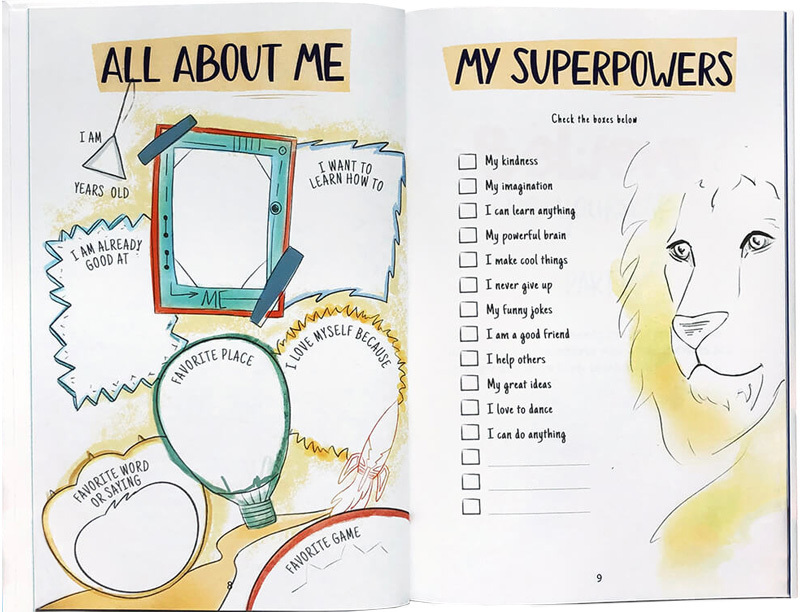 ALL ABOUT ME
I AM
YEARS OLD
ME
I WANT TO
LEARN HOW TO
I AM ALREADY
GOOD AT
FAVORITE PLACE
I LOVE MYSELF BECAUSE
FAVORITE WORD
OR SAYING
FAVORITE GAME
8
MY SUPERPOWERS
Check the boxes below
My kindness
My imagination
I can learn anything
My powerful brain
I make cool things
I never give up
My funny jokes
I am a good friend
I help others
My great ideas
I love to dance
I can do anything
9